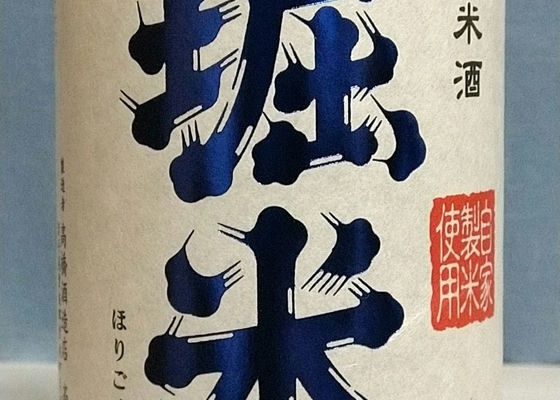 米酒
自家
製米
使用
堀米
ほりご
製造者 高橋酒造店